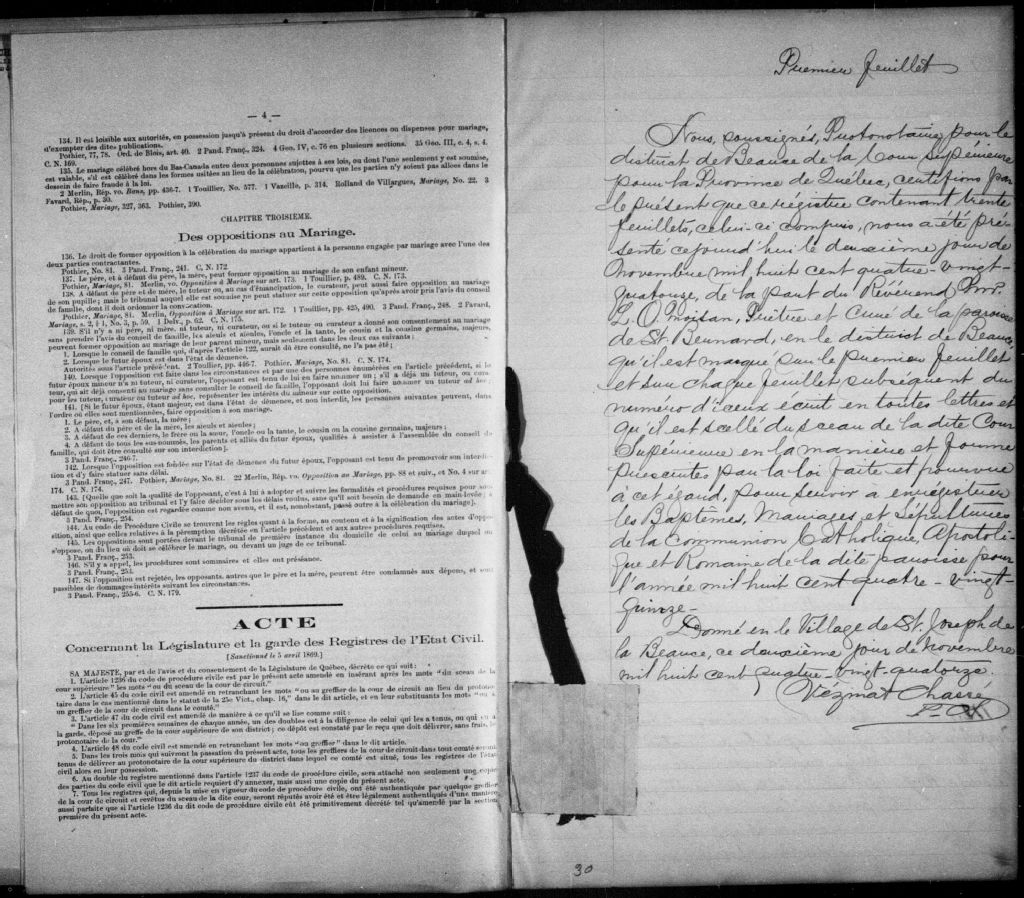 — 4 —
134. Il est loisible aux autorités, en possession jusqu'à présent du droit d'accorder des licences ou dispenses pour mariage,
d'exempter des dites publications.
Pothier, 77, 78. Ord. de Blois, art. 40. 2 Pand. Franç., 324. 4 Geo. IV, c. 76 en plusieurs sections. 35 Geo. III, c. 4, s. 4.
C. N. 169.
135. Le mariage célébré hors du Bas-Canada entre deux personnes sujettes à ses lois, ou dont l'une seulement y est soumise,
est valable, s'il est célébré dans les formes usitées au lieu de la célébration, pourvu que les parties n'y soient pas allées dans le
dessein de faire fraude à la loi.
2 Merlin, Rép. vo. Bans, pp. 436-7. 1 Touillier, No. 577. 1 Vazeille, p. 314. Rolland de Villargues, Mariage, No. 22. 3
Favard, Rép., p. 30.
Pothier, Mariage, 327, 363. Pothier, 390.
CHAPITRE TROISIEME.
Des oppositions au Mariage.
136. Le droit de former opposition à la célébration du mariage appartient à la personne engagée par mariage avec l'une des
deux parties contractantes.
Pothier, No. 81. 3 Pand. Franç., 241. C. N. 172.
137. Le père, et à défaut du père, la mère, peut former opposition au mariage de son enfant mineur.
Pothier, Mariage, 81. Merlin, vo. Opposition à Mariage sur art. 173. 1 Touillier, p. 489. C. N. 173.
138. A défaut de père et de mère, le tuteur ou, au cas d'émancipation, le curateur, peut aussi faire opposition au mariage
de son pupille; mais le tribunal auquel elle est soumise ne peut statuer sur cette opposition qu'après avoir pris l'avis du conseil
de famille, dont il doit ordonner la convocation.
Pothier, Mariage, 81. Merlin, Opposition à Mariage sur art. 172. 1 Touillier, pp. 425, 490. 3 Pand. Franç., 248. 2 Favard,
Mariage, s. 2, § 1, No. 3, p. 59. 1 Delv., p. 62. C. N. 175.
139. S'il n'y a ni père, ni mère, ni tuteur, ni curateur, ou si le tuteur ou curateur a donné son consentement au mariage
sans prendre l'avis du conseil de famille, les aïeuls et aïeules, l'oncle et la tante, le cousin et la cousine germains, majeurs,
peuvent former opposition au mariage de leur parent mineur, mais seulement dans les deux cas suivants:
1. Lorsque le conseil de famille qui, d'après l'article 122, aurait dû être consulté, ne l'a pas été;
2. Lorsque le futur époux est dans l'état de démence.
Autorités sous l'article précédent. 2 Touillier, pp. 446-7. Pothier, Mariage, No. 81. C. N. 174.
140. Lorsque l'opposition est faite dans les circonstances et par une des personnes énumérées en l'article précédent, si le
futur époux mineur n'a ni tuteur, ni curateur, l'opposant est tenu de lui en faire nommer un; s'il a déjà un tuteur, ou cura-
teur, qui ait déjà consenti au mariage sans consulter le conseil de famille, l'opposant doit lui faire nommer un tuteur ad hoc;
pour les tuteur, curateur ou tuteur ad hoc, représenter les intérêts du mineur sur cette opposition.
141. [Si le futur époux, étant majeur, est dans l'état de démence, et non interdit, les personnes suivantes peuvent, dans
l'ordre où elles sont mentionnées, faire opposition à son mariage.
1. Le père, et, à son défaut, la mère;
2. A défaut du père et de la mère, les aïeuls et aïeules;
3. A défaut de ces derniers, le frère ou la sœur, l'oncle ou la tante, le cousin ou la cousine germains, majeurs;
4. A défaut de tous les sus-nommés, les parents et alliés du futur époux, qualifiés à assister à l'assemblée du conseil de
famille, qui doit être consulté sur son interdiction].
3 Pand. Franç., 246-7.
142. Lorsque l'opposition est fondée sur l'état de démence du futur époux, l'opposant est tenu de promouvoir son interdic-
tion et d'y faire statuer sans délai.
3 Pand. Franç., 247. Pothier, Mariage, No. 81. 22 Merlin, Rép. vo. Opposition au Mariage, pp. 88 et suiv., et No. 4 sur art.
174. C. N. 174.
143. [Quelque soit la qualité de l'opposant, c'est à lui à adopter et suivre les formalités et procédures requises pour sou-
mettre son opposition au tribunal et l'y faire décider sous les délais voulus, sans qu'il soit besoin de demande en main-levée; à
défaut de quoi, l'opposition est regardée comme non avenu, et il est, nonobstant, passé outre à la célébration du mariage].
3 Pand. Franç., 254.
144. Au code de Procédure Civile se trouvent les règles quant à la forme, au contenu et à la signification des actes d'oppo-
sition, ainsi que celles relatives à la péremption décrétée en l'article précédent et aux autres procédures requises.
145. Les oppositions sont portées devant le tribunal de première instance du domicile de celui au mariage duquel on
s'oppose, ou du lieu où doit se célébrer le mariage, ou devant un juge de ce tribunal.
3 Pand. Franç., 253.
146. S'il y a appel, les procédures sont sommaires et elles ont préséance.
3 Pand. Franç., 253.
147. Si l'opposition est rejetée, les opposants, autres que le père et la mère, peuvent être condamnés aux dépens, et sont
passibles de dommages-intérêts suivant les circonstances.
3 Pand. Franç., 255-6. C. N. 179.
ACTE
Concernant la Législature et la garde des Registres de l'Etat Civil.
[Sanctionné le 5 avril 1869.]
SA MAJESTE, par et de l'avis et du consentement de la Législature de Québec, décrète ce qui suit:
1. L'article 1236 du code de procédure civile est par le présent acte amendé en insérant après les mots "du sceau de la
cour supérieure" les mots "ou du sceau de la cour de circuit."
2. L'article 45 du code civil est amendé en retranchant les mots "ou au greffier de la cour de circuit au lieu du protono-
taire dans le cas mentionné dans le statut de la 25e Vict., chap. 16," dans le dit article, et en leur substituants les mots "ou à
un greffier de la cour de circuit dans le comté."
3. L'article 47 du code civil est amendé de manière à ce qu'il se lise comme suit:
"Dans les six premières semaines de chaque année, un des doubles est à la diligence de celui qui les a tenus, ou qui en a
la garde, déposé au greffe de la cour supérieure de son district; ce dépôt est constaté par le reçu que doit délivrer, sans frais, le
protonotaire de la cour."
4. L'article 48 du code civil est amendé en retranchant les mots "ou greffier" dans le dit article.
5. Dans les trois mois qui suivront la passation du présent acte, tous les greffiers de la cour de circuit dans tout comté seront
tenus de délivrer au protonotaire de la cour supérieure du district dans lequel ce comté est situé, tous les registres de l'état
civil alors en leur possession.
6. Au double du registre mentionné dans l'article 1237 du code de procédure civile, sera attaché non seulement une copie
des parties du code civil que le dit article requiert d'y annexes, mais aussi une copie du présent acte.
7. Tous les registres qui, depuis la mise en vigueur du code de procédure civile, ont été authentiqués par quelque greffier
de la cour de circuit et revêtus du sceau de la dite cour, seront réputés avoir été et être légalement authentiqués d'une manière
aussi parfaite que si l'article 1236 du dit code de procédure civile eût été primitivement décrété tel qu'amendé par la section
première du présent acte.
Premier feuillet
Nous, soussignés, Protonotaire pour le
district de Beauce de la Cour Supérieure
pour la Province de Québec, certifions par
le présent que ce registre contenant trente
feuillets, celui-ci compris, nous a été pré-
senté ce jourd'hui le deuxième jour de
Novembre mil huit cent quatre-vingt-
quatorze, de la part du Révérend Mr.
L. O. Noisan, Prêtre et Curé de la paroisse
de St. Bernard, en le district de Beauce,
qu'il est marqué sur le premier feuillet
et sur chaque feuillet subséquent du
numéro d'iceux écrit en toutes lettres et
qu'il est scellé du sceau de la dite Cour
Supérieure en la manière et forme
prescrites par la loi faite et pourvue
à cet égard, pour servir a enrégistrer
les Baptêmes, Mariages et Sépultures
de la Communion Catholique, Apostoli-
que et Romaine de la dite paroisse pour
l'année mil huit cent quatre-vingt-
quinze-
Donné en le Village de St. Joseph de
la Beauce, ce deuxième jour de Novembre
mil huit cent quatre-vingt-quatorze.
30